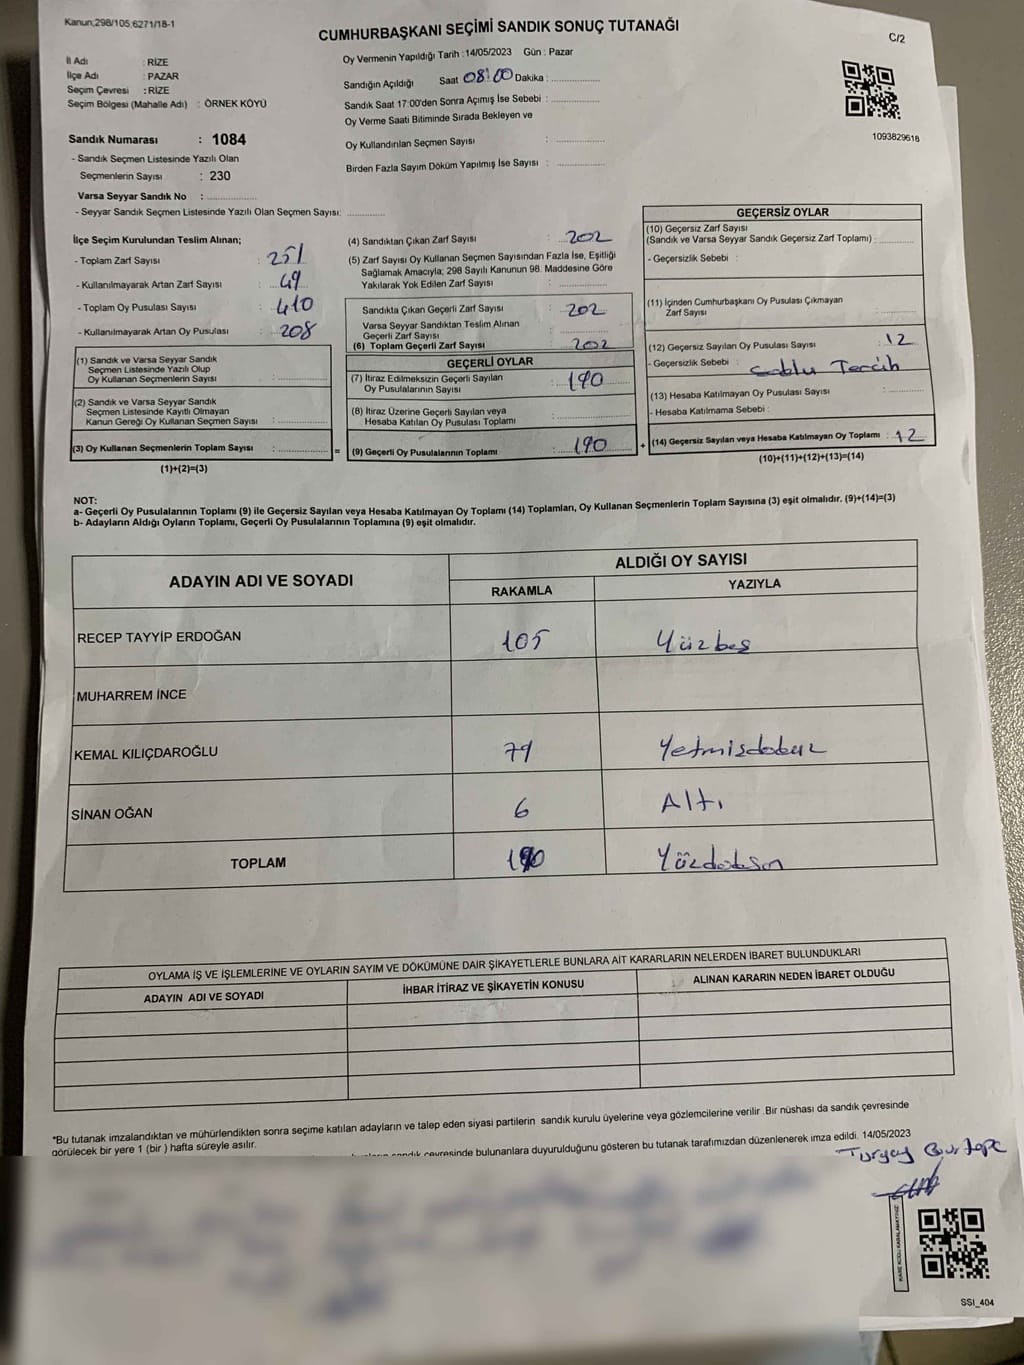 Kanun;298/105,6271/18-1
CUMHURBAŞKANI SEÇİMİ SANDIK SONUÇ TUTANAĞI
C/2
İl Adı : RİZE
İlçe Adı : PAZAR
Seçim Çevresi : RİZE
Seçim Bölgesi (Mahalle Adı) : ÖRNEK KÖYÜ
Sandık Numarası : 1084
- Sandık Seçmen Listesinde Yazılı Olan
Seçmenlerin Sayısı : 230
Varsa Seyyar Sandık No :
- Seyyar Sandık Seçmen Listesinde Yazılı Olan Seçmen Sayısı:
Oy Vermenin Yapıldığı Tarih :14/05/2023 Gün : Pazar
Sandığın Açıldığı Saat 08:00 Dakika :
Sandık Saat 17:00'den Sonra Açımış İse Sebebi :
Oy Verme Saati Bitiminde Sırada Bekleyen ve
Oy Kullandırılan Seçmen Sayısı :
Birden Fazla Sayım Döküm Yapılmış İse Sayısı :
1093829618
İlçe Seçim Kurulundan Teslim Alınan;
- Toplam Zarf Sayısı : 251
- Kullanılmayarak Artan Zarf Sayısı : 49
- Toplam Oy Pusulası Sayısı : 410
- Kullanılmayarak Artan Oy Pusulası : 208
(1) Sandık ve Varsa Seyyar Sandık
Seçmen Listesinde Yazılı Olup
Oy Kullanan Seçmenlerin Sayısı :
(2) Sandık ve Varsa Seyyar Sandık
Seçmen Listesinde Kayıtlı Olmayan
Kanun Gereği Oy Kullanan Seçmen Sayısı :
(3) Oy Kullanan Seçmenlerin Toplam Sayısı : =
(1)+(2)=(3)
(4) Sandıktan Çıkan Zarf Sayısı : 202
(5) Zarf Sayısı Oy Kullanan Seçmen Sayısından Fazla İse, Eşitliği
Sağlamak Amacıyla; 298 Sayılı Kanunun 98. Maddesine Göre
Yakılarak Yok Edilen Zarf Sayısı :
Sandıkta Çıkan Geçerli Zarf Sayısı : 202
Varsa Seyyar Sandıktan Teslim Alınan
Geçerli Zarf Sayısı :
(6) Toplam Geçerli Zarf Sayısı : 202
GEÇERLİ OYLAR
(7) İtiraz Edilmeksizin Geçerli Sayılan
Oy Pusulalarının Sayısı : 190
(8) İtiraz Üzerine Geçerli Sayılan veya
Hesaba Katılan Oy Pusulası Toplamı :
(9) Geçerli Oy Pusulalarının Toplamı : 190 +
GEÇERSİZ OYLAR
(10) Geçersiz Zarf Sayısı
(Sandık ve Varsa Seyyar Sandık Geçersiz Zarf Toplamı) :
- Geçersizlik Sebebi :
(11) İçinden Cumhurbaşkanı Oy Pusulası Çıkmayan
Zarf Sayısı :
(12) Geçersiz Sayılan Oy Pusulası Sayısı : 12
- Geçersizlik Sebebi : Tercih
(13) Hesaba Katılmayan Oy Pusulası Sayısı :
- Hesaba Katılmama Sebebi :
(14) Geçersiz Sayılan veya Hesaba Katılmayan Oy Toplamı : 12
(10)+(11)+(12)+(13)=(14)
NOT:
a- Geçerli Oy Pusulalarının Toplamı (9) ile Geçersiz Sayılan veya Hesaba Katılmayan Oy Toplamı (14) Toplamları, Oy Kullanan Seçmenlerin Toplam Sayısına (3) eşit olmalıdır. (9)+(14)=(3)
b- Adayların Aldığı Oyların Toplamı, Geçerli Oy Pusulalarının Toplamına (9) eşit olmalıdır.
ADAYIN ADI VE SOYADI
ALDIĞI OY SAYISI
RAKAMLA YAZIYLA
RECEP TAYYİP ERDOĞAN 105 Yüzbeş
MUHARREM İNCE
KEMAL KILIÇDAROĞLU 79 Yetmisdokuz
SİNAN OĞAN 6 Altı
TOPLAM 190 Yüzdoksan
OYLAMA İŞ VE İŞLEMLERİNE VE OYLARIN SAYIM VE DÖKÜMÜNE DAİR ŞİKAYETLERLE BUNLARA AİT KARARLARIN NELERDEN İBARET BULUNDUKLARI
ADAYIN ADI VE SOYADI İHBAR İTİRAZ VE ŞİKAYETİN KONUSU ALINAN KARARIN NEDEN İBARET OLDUĞU
*Bu tutanak imzalandıktan ve mühürlendikten sonra seçime katılan adayların ve talep eden siyasi partilerin sandık kurulu üyelerine veya gözlemcilerine verilir .Bir nüshası da sandık çevresinde
görülecek bir yere 1 (bir ) hafta süreyle asılır.
sandık çevresinde bulunanlara duyurulduğunu gösteren bu tutanak tarafımızdan düzenlenerek imza edildi. 14/05/2023
KARE KODU KARALAMAYINIZ
SSI_404